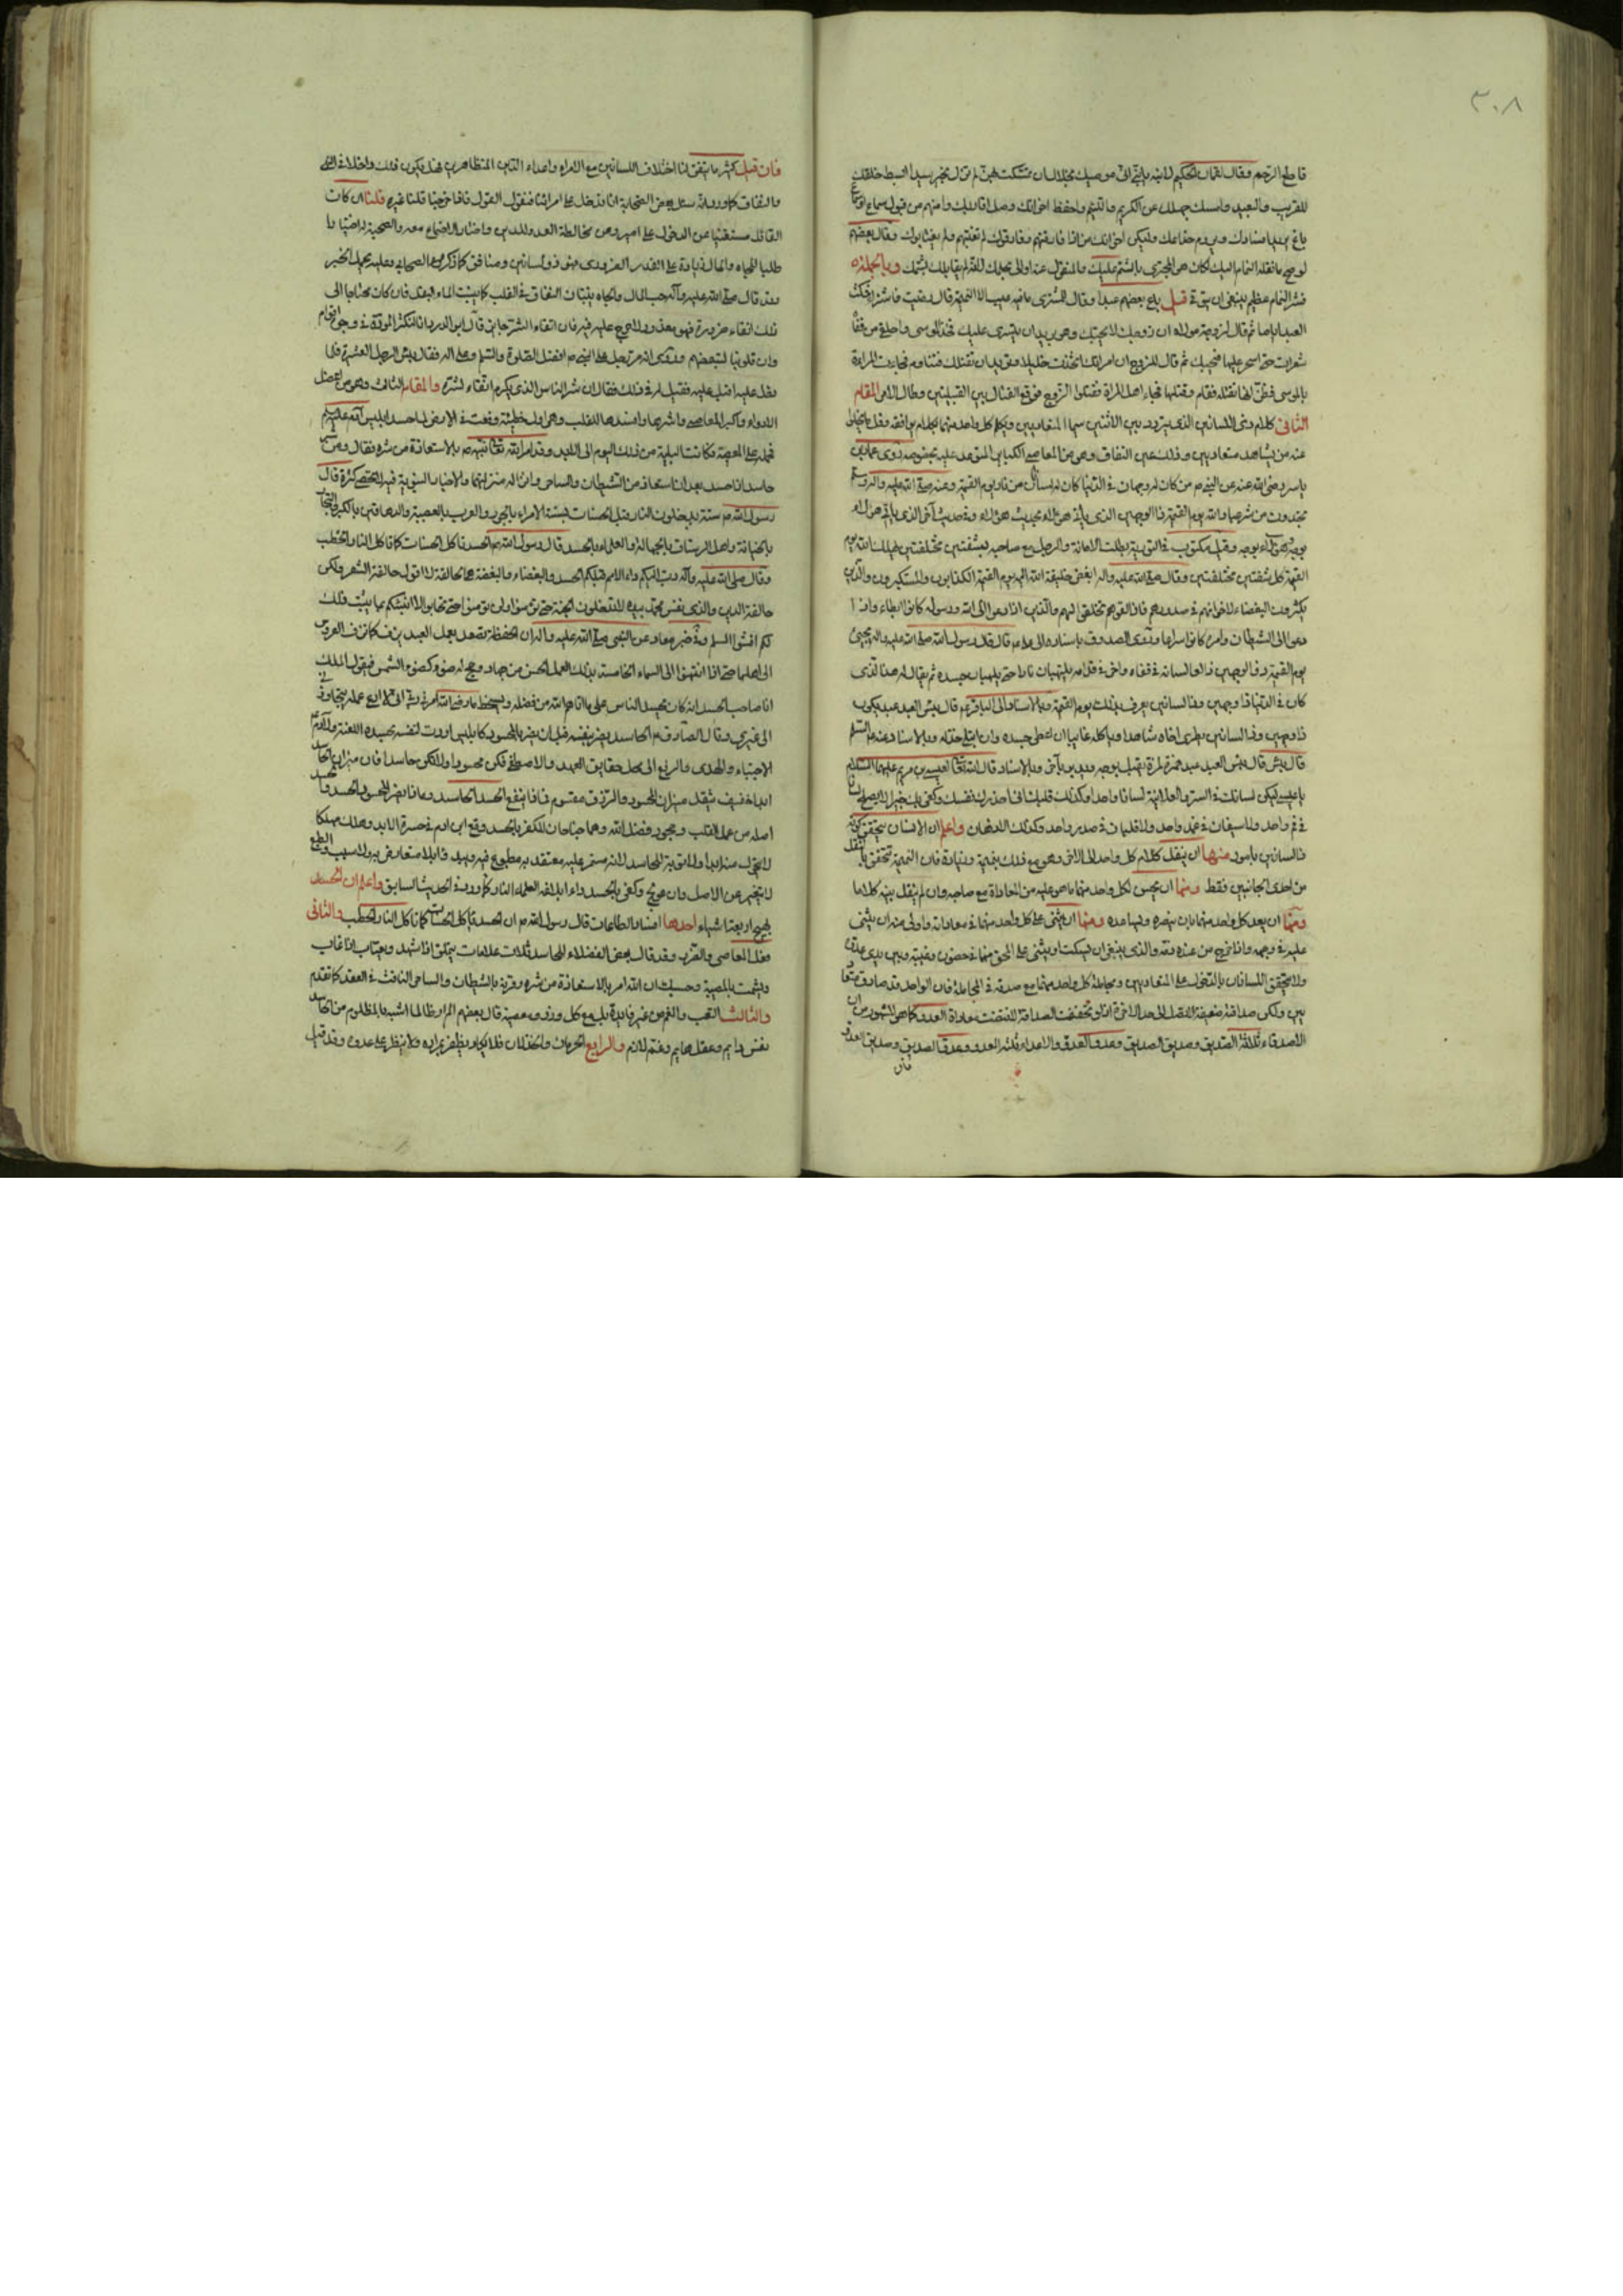 ٣٠٨
قاطع الرحم وقال لقمان الحكيم لابنه يا بني اني موصيك بخلال ان تمسكت بهن لم تزل سيدا ابسط خلقك
للقريب والبعيد وامسك جهلك عن الكريم واللئيم واحفظ اخوانك وصل اقاربك وامنهم من قبول ساع او سماع
باغ يريد فسادك ويروم خداعك وليكن اخوانك من اذا فارقتهم وفارقوك لم تغتبهم ولم يغتابوك وقال بعضهم
لو صح ما نقله النمام اليك لكان هو المجتري بالشتم عليك والمنقول عنه اولى بحلمك لانه لم يقابلك بشتمك وبالجملة
فشر النمام عظيم ينبغي ان يتوقى قيل باع بعضهم عبدا وقال للمشتري ما فيه عيب الا النميمة قال رضيت فاشتراه فمكث
العبد اياما ثم قال لزوجة مولاه ان زوجك لا يحبك وهو يريد ان يتسرى عليك فخذي الموسى واحلقي من قفاه
شعرات حتى اسحر عليها فيحبك ثم قال للزوج ان امرأتك اتخذت خليلا وتريد ان تقتلك فتناوم فجاءت المرأة
بالموسى فظن انها تقتله فقام وقتلها فجاء اهل المرأة فقتلوا الزوج فوقع القتال بين القبيلتين وطال الامر المقام
الثاني كلام ذي اللسانين الذي يتردد بين الاثنين سيما المتعاديين ويكلم كل واحد منهما بكلام يوافقه وقل ما يخلو
عنه من يشاهد متعاديين وذلك عين النفاق وهو من المعاصي الكباير المتوعد عليه بخصوصه روى عمار بن
ياسر رضي الله عنه عن النبي ص من كان له وجهان في الدنيا كان له لسانان من نار يوم القيمة وعنه صلى الله عليه واله
تجدون من شر عباد الله يوم القيمة ذا الوجهين الذي يأتي هؤلاء بحديث هؤلاء وفي حديث آخر الذي يأتي هؤلاء
بوجه وهؤلاء بوجه وقيل مكتوب في التورية بطلت الامانة والرجل مع صاحبه بشفتين مختلفتين يهلك الله يوم
القيمة كل شفتين مختلفتين وقال صلى الله عليه واله ابغض خليقة الله اليه يوم القيمة الكذابون والمستكبرون والذين
يكثرون البغضاء لاخوانهم في صدورهم فاذا لقوهم تخلقوا لهم والذين اذا دعوا الى الله ورسوله كانوا ابطاء واذا
دعوا الى الشيطان وامره كانوا سراعا وروى الصدوق باسناده الى علي ع قال قال رسول الله صلى الله عليه واله يجيئ
يوم القيمة ذو الوجهين دالعا لسانه في قفاه واخر في قدامه يلتهبان نارا حتى يلهبان جسده ثم يقال له هذا الذي
كان في الدنيا ذا وجهين وذا لسانين يعرف بذلك يوم القيمة وبالاسناد الى الباقر ع قال بئس العبد عبد يكون
ذا وجهين وذا لسانين يطري اخاه شاهدا ويأكله غايبا ان اعطي حسده وان ابتلي خذله وبالاسناد عنه عليه السلم
قال بئس العبد عبد همزة لمزة يقبل بوجه ويدبر بآخر وبالاسناد قال الله تعالى لعيسى بن مريم عليهما السلام
يا عيسى ليكن لسانك في السر والعلانية لسانا واحدا وكذلك قلبك اني احذرك نفسك وكفى بك خبيرا لا يصلح لسانان
في فم واحد ولا سيفان في غمد واحد ولا قلبان في صدر واحد وكذلك الاذهان واعلم ان الانسان يتحقق كونه
ذا لسانين بامور منها ان ينقل كلام كل واحد الى الاخر وهو مع ذلك نميمة وزيادة فان النميمة تتحقق بالنقل
من احدى الجانبين فقط ومنها ان يحسن لكل واحد منهما ما هو عليه من المعاداة مع صاحبه وان لم ينقل بينهما كلاما
ومنها ان يعد كل واحد منهما بان ينصره ويساعده ومنها ان يثني على كل واحد منهما في معاداته واولى منه ان يثني
عليه في وجهه واذا خرج من عنده ذمه والذي ينبغي ان يسكت او يثني على المحق منهما في حضوره وغيبته وبين يدي عدوه
ولا يتحقق اللسانان بالدخول على المتعاديين ومجاملة كل واحد منهما مع صدقه في المجاملة فان الواحد قد يصادق متعاديين
ولكن صداقة ضعيفة لا تصل الى حد الاخوة اذ لو تحققت الصداقة لاقتضت معاداة العدو كما هو المشهور من ان
الاصدقاء ثلاثة الصديق وصديق الصديق وعدو العدو والاعداء ثلثة العدو وعدو الصديق وصديق العدو
فان
فان قيل كثيرا ما يتفق لنا اختلاف اللسانين مع الامراء واعداء الدين المتظاهرين فهل يكون ذلك داخلا في النهي
والنفاق كما ورد انه سئل بعض الصحابة انا ندخل على امرائنا فنقول القول فاذا خرجنا قلنا غيره قلنا ان كان
القائل مستغنيا عن الدخول على امير ومن مخالطة العدو للدين واختار الاجتماع معه والصحبة
طلبا للجاه والمال زيادة على القدر الضروري فهو ذو لسانين ومنافق كما ذكره الصحابي وعليه يحمل الخبر
وقد قال صلى الله عليه وآله حب المال والجاه ينبتان النفاق في القلب كما ينبت الماء البقل فان كان محتاجا الى
ذلك اتقاء ضرورة فهو معذور ولا حرج عليه فيه فان اتقاء الشر جايز قال ابو الدرداء انا لنكشر في وجوه اقوام
وان قلوبنا لتبغضهم وروي انه مر رجل على النبي عليه افضل الصلوة والسلم وعلى اله فقال بئس رجل العشيرة فلما
دخل عليه اقبل عليه فقيل له في ذلك فقال ان شر الناس الذي يكرم اتقاء لشره والمقام الثالث وهو من اعضل
الادواء واكبر المعاصي واشرها وافسدها للقلب وهي اول خطيئة وقعت في الارض لما حسد ابليس آدم عليه السلم
فحمله على المعصية فكانت البلية من ذلك اليوم الى الابد وقد امر الله تعالى نبيه ص بالاستعاذة من شره فقال ومن شر
حاسد اذا حسد بعد ان استعاذ من الشيطان والساحر وانزله منزلتهما والاخبار النبوية فيه لا تحصى كثرة قال
رسول الله ص ستة يدخلون النار قبل الحساب بستة الامراء بالجور والعرب بالعصبية والدهاقين بالكبر والتجار
بالخيانة واهل الرستاق بالجهالة والعلماء بالحسد وقال رسول الله ص الحسد يأكل الحسنات كما تأكل النار الحطب
وقال صلى الله عليه وآله دب اليكم داء الامم قبلكم الحسد والبغضاء والبغضة هي الحالقة لا اقول حالقة الشعر ولكن
حالقة الدين والذي نفس محمد بيده لا تدخلون الجنة حتى تؤمنوا ولن تؤمنوا حتى تحابوا الا انبئكم بما يثبت ذلك
لكم افشوا السلم وفي خبر معاذ عن النبي صلى الله عليه واله ان الحفظة تصعد بعمل العبد يزف كما تزف العروس
الى اهلها حتى اذا انتهوا الى السماء الخامسة بذلك العمل الحسن من جهاد وحج له ضوء كضوء الشمس فيقول الملك
انا صاحب الحسد انه كان يحسد الناس على ما اتاهم الله من فضله ويسخط ما رضي الله امرني ربي ان لا ادع عمله يتجاوزني
الى غيري وقال الصادق ع الحاسد يضر بنفسه قبل ان يضر بالمحسود كابليس اورث لنفسه بحسده اللعنة ولآدم
الاجتباء والهدى والرفع الى محل حقايق العهد والاصطفاء فكن محسودا ولا تكن حاسدا فان ميزان الحاسد
ابدا خفيف بثقل ميزان المحسود والرزق مقسوم فماذا ينفع الحسد الحاسد وماذا يضر المحسود الحسد والحسد
اصله من عمى القلب وجحود فضل الله وهما جناحان للكفر بالحسد وقع ابن ادم في حسرة الابد وهلك مهلكا
لا ينجو منه ابدا ولا توبة للحاسد لانه مستمر عليه معتقد به مطبوع فيه يبدو بلا معارض به ولا سبب والطبع
لا يتغير عن الاصل وان عولج وكفى بالحسد داء ادخاله العلماء النار كما ورد في الحديث السابق واعلم ان الحسد
يهيج اربعة اشياء احدها افساد الطاعات قال رسول الله ص ان الحسد يأكل الحسنات كما تأكل النار الحطب والثاني
فعل المعاصي والشرور وقد قال بعض الفضلاء للحاسد ثلاث علامات يتملق اذا شهد ويغتاب اذا غاب
ويشمت بالمصيبة وحسبك ان الله امر بالاستعاذة من شره وقرنه بالشيطان والساحر النافث في العقد كما تقدم
والثالث التعب والغم من غير فايدة بل مع كل وزر ومعصية قال بعضهم لم ار ظالما اشبه بالمظلوم من الحاسد
نفس دايم وعقل هايم وغم لازم والرابع الحرمان والخذلان فلا يكاد يظفر بمراد ولا ينظر على عدوه وقد قيل